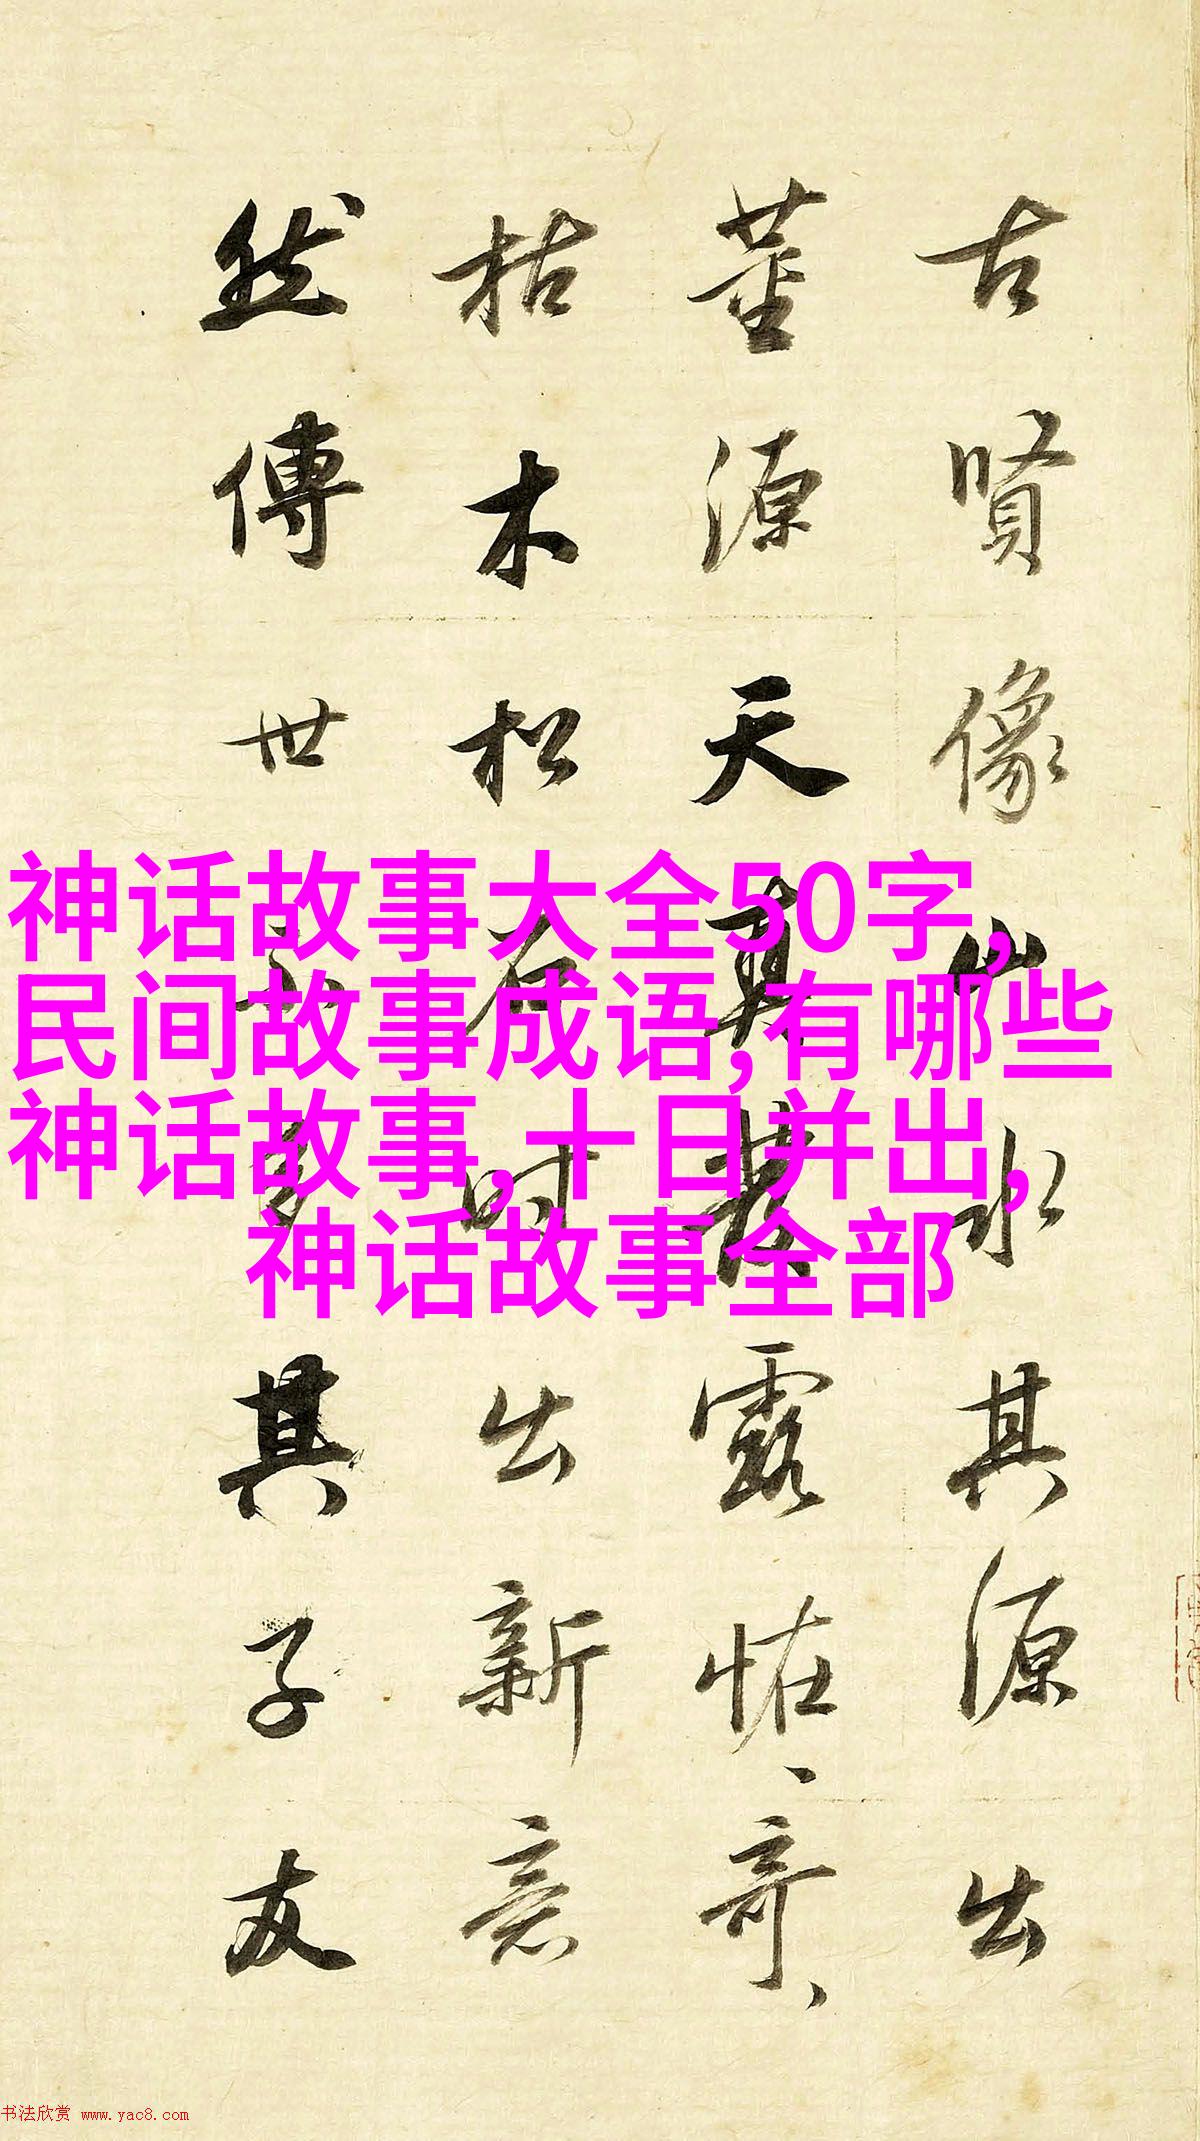 古賢像山水其源出
董源天真發露怪、奇、
枯木松石時出新意
然傳世不多其子友
神话故事大全50字,
民间故事成语,有哪些
神话故事,十日并出,
神话故事全部
书法欣赏 www.yac8.com